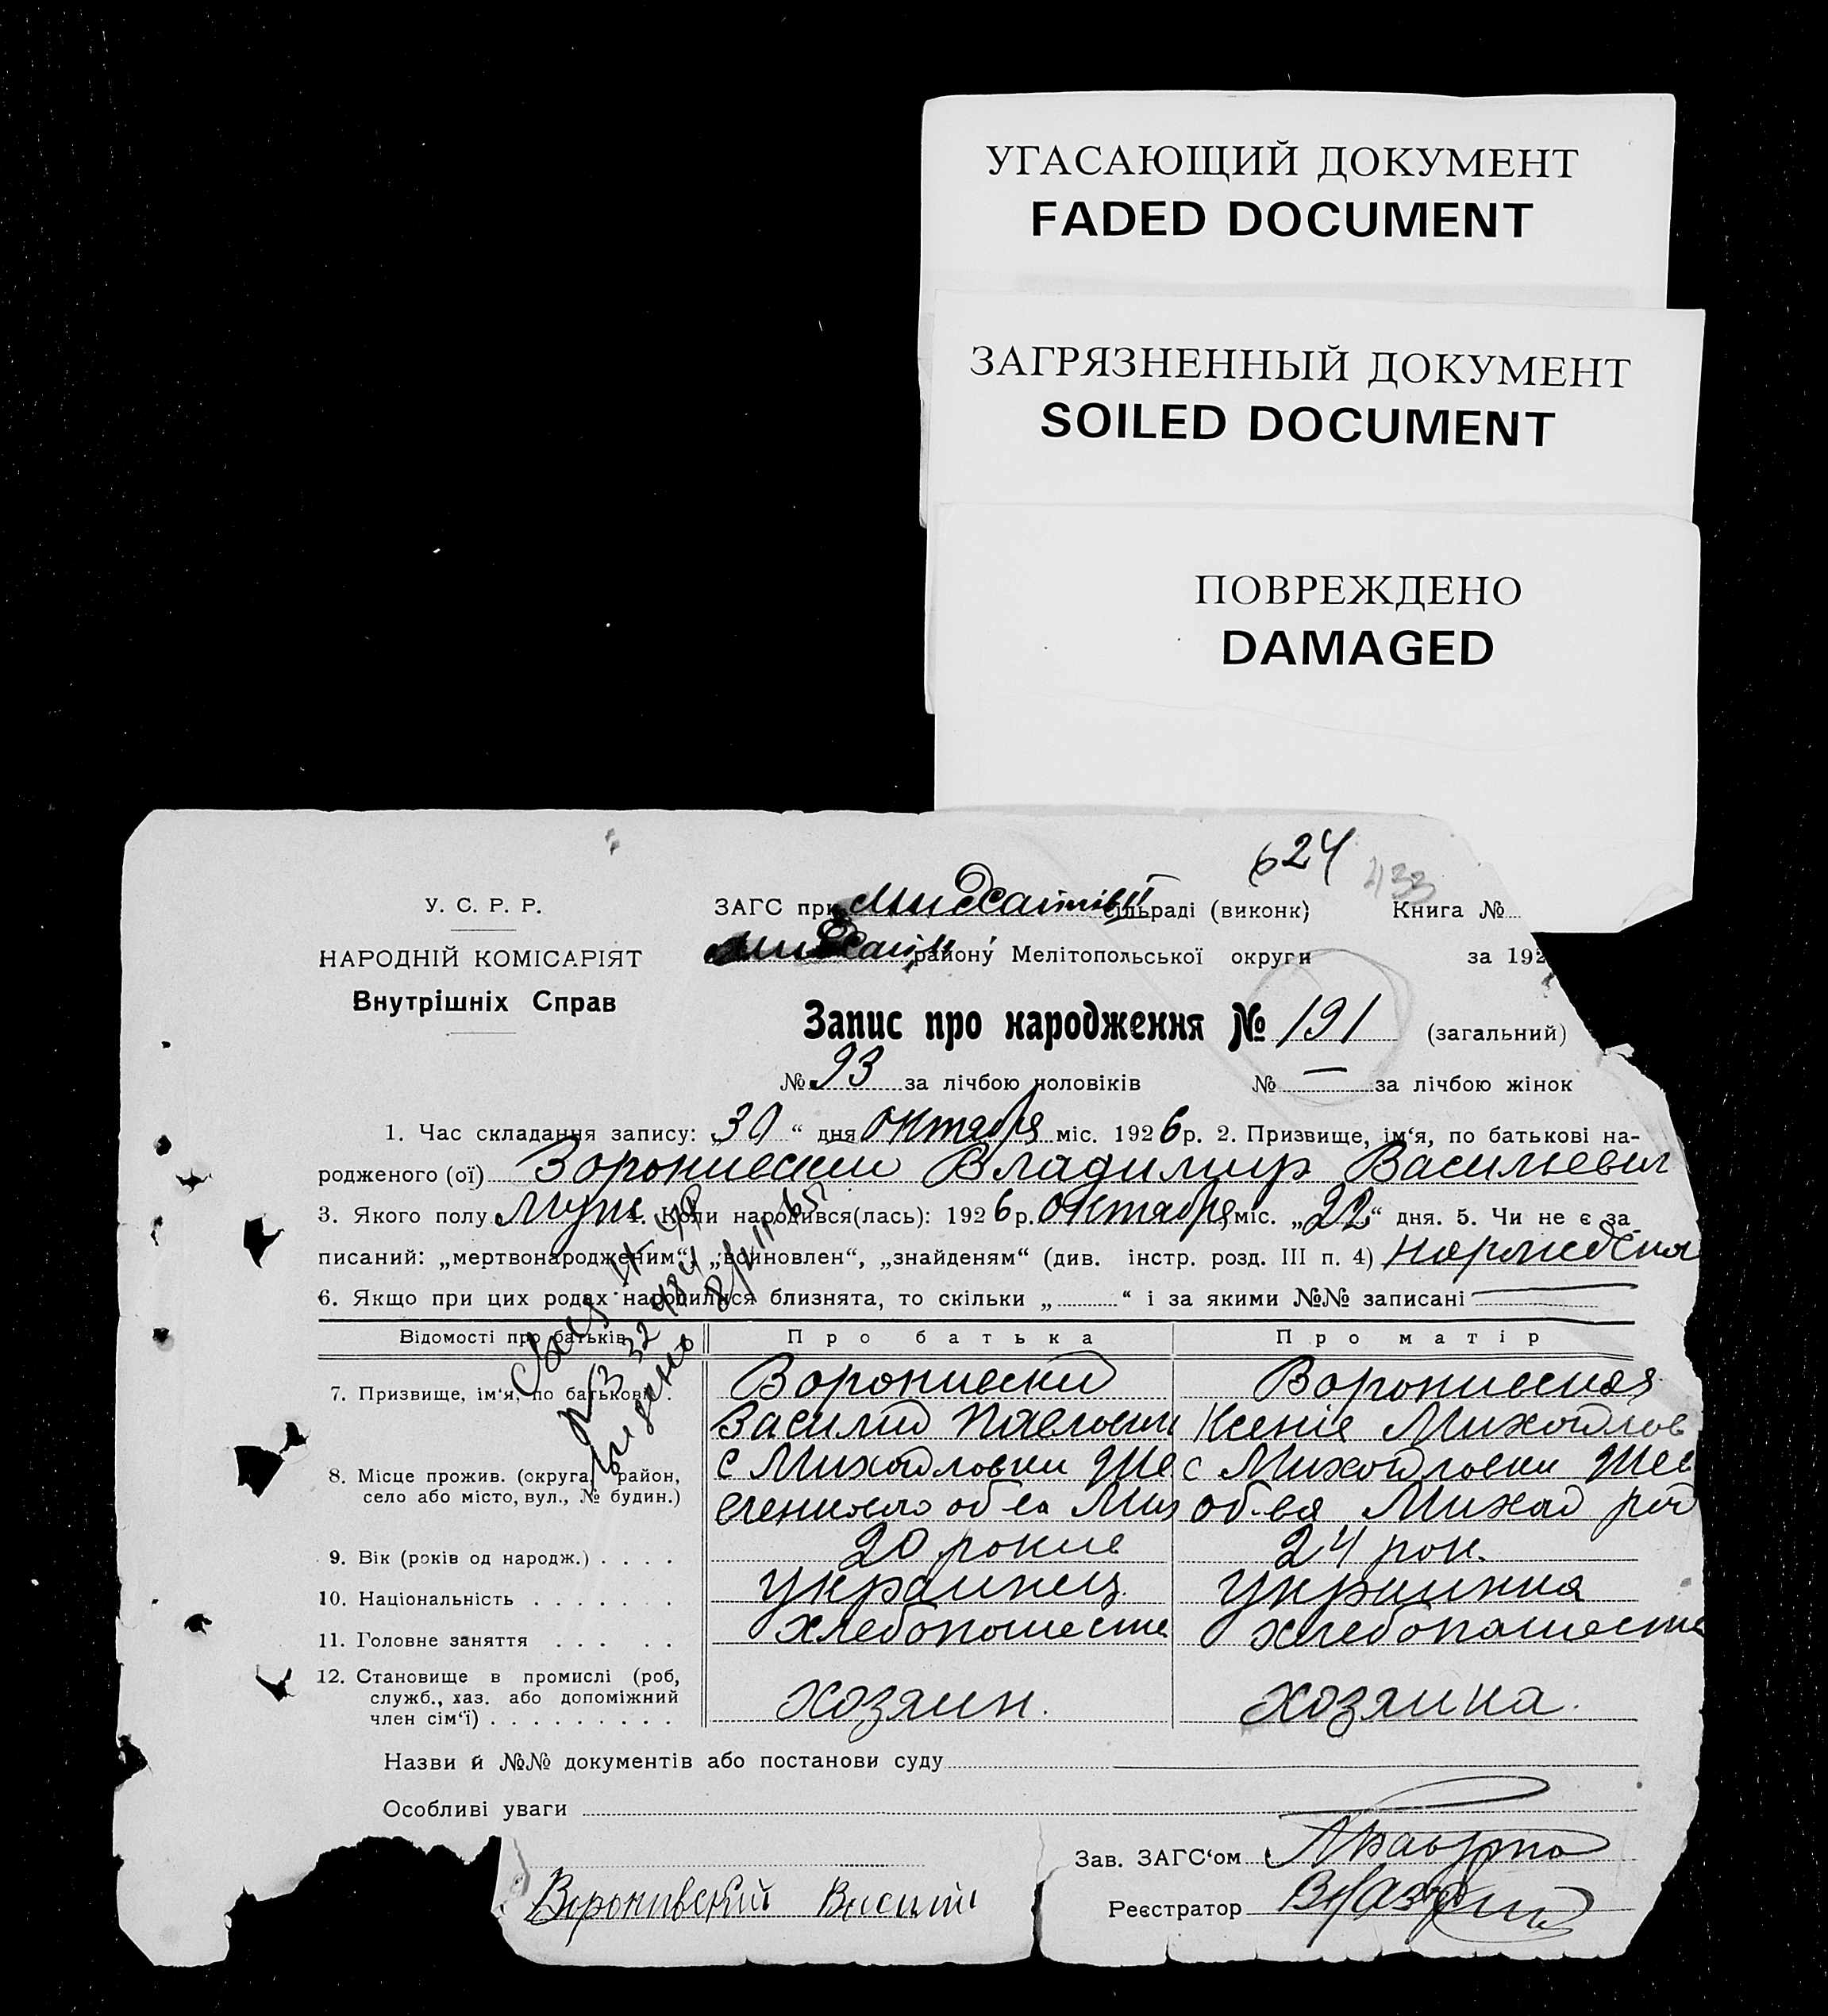 УГАСАЮЩИЙ ДОКУМЕНТ
FADED DOCUMENT
ЗАГРЯЗНЕННЫЙ ДОКУМЕНТ
SOILED DOCUMENT
ПОВРЕЖДЕНО
DAMAGED
624
433
У. С. Р. Р.
НАРОДНІЙ КОМІСАРІЯТ
Внутрішніх Справ
ЗАГС при сільраді (виконк) Книга №
району Мелітопольської округи за 192
Запис про народження № 191 (загальний)
№ 93 за лічбою чоловіків № — за лічбою жінок
1. Час складання запису: „30“ дня октября міс. 1926 р. 2. Призвище, ім'я, по батькові на-
родженого (ої) Воронивский Владимир Васильевич
3. Якого полу муж 4. Коли народився(лась): 1926 р. октября міс. „22“ дня. 5. Чи не є за-
писаний: „мертвонародженим“, „всиновлен“, „знайденям“ (див. інстр. розд. III п. 4)
6. Якщо при цих родах народилися близнята, то скільки „ “ і за якими №№ записані
Відомості про батьків Про батька Про матір
7. Призвище, ім'я, по батькові Воронивский Воронивская
Василий Павлович Ксенія Михайлов
8. Місце прожив. (округа, район, с Михайловки Ше с Михайловки Шев
село або місто, вул., № будин.) вченковского об-ва Мих об-ва Михай рай
9. Вік (років од народж.) . . . . 20 роков 24 рок.
10. Національність . . . . . . . украинец украинка
11. Головне заняття . . . . . хлебопашество хлебопашество
12. Становище в промислі (роб, служб., хаз. або допоміжний член сім'ї) . . . . . . . . . хозяин. хозяйка.
Назви й №№ документів або постанови суду
Особливі уваги
Зав. ЗАГС'ом
Воронивский Василий Реєстратор